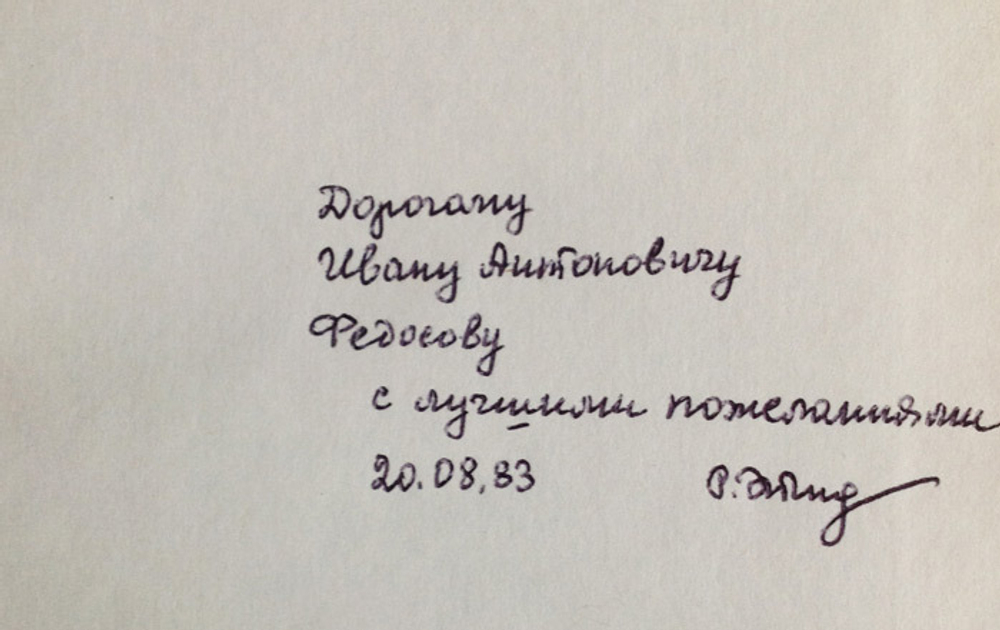 Дорогому
Ивану Антоновичу
Федосову
с лучшими пожеланиями
20.08.83